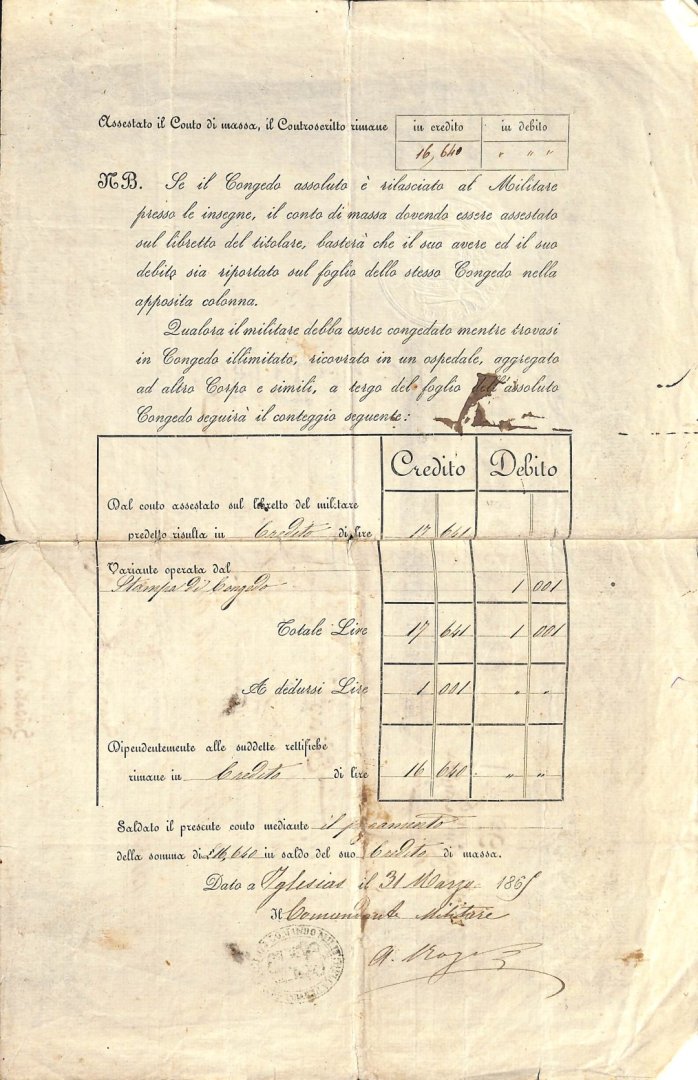 Assestato il Conto di massa, il Controscritto rimane
in credito in debito
16,640 " " "
NB. Se il Congedo assoluto è rilasciato al Militare
presso le insegne, il conto di massa dovendo essere assestato
sul libretto del titolare, basterà che il suo avere ed il suo
debito sia riportato sul foglio dello stesso Congedo nella
apposita colonna.
Qualora il militare debba essere congedato mentre trovasi
in Congedo illimitato, ricovrato in un ospedale, aggregato
ad altro Corpo e simili, a tergo del foglio dell'assoluto
Congedo seguirà il conteggio seguente:
Credito Debito
Dal conto assestato sul libretto del militare
predetto risulta in Credito di lire 17 641
Variante operata dal
Stampa di Congedo 1 001
Totale Lire 17 641 1 001
A dedursi Lire 1 001 " "
Dipendentemente alle suddette rettifiche
rimane in Credito di lire 16 640 " "
Saldato il presente conto mediante il pagamento
della somma di £ 16,640 in saldo del suo Credito di massa.
Dato a Iglesias il 31 Marzo 186
Il Comandante Militare
A.
COMANDO MILIT